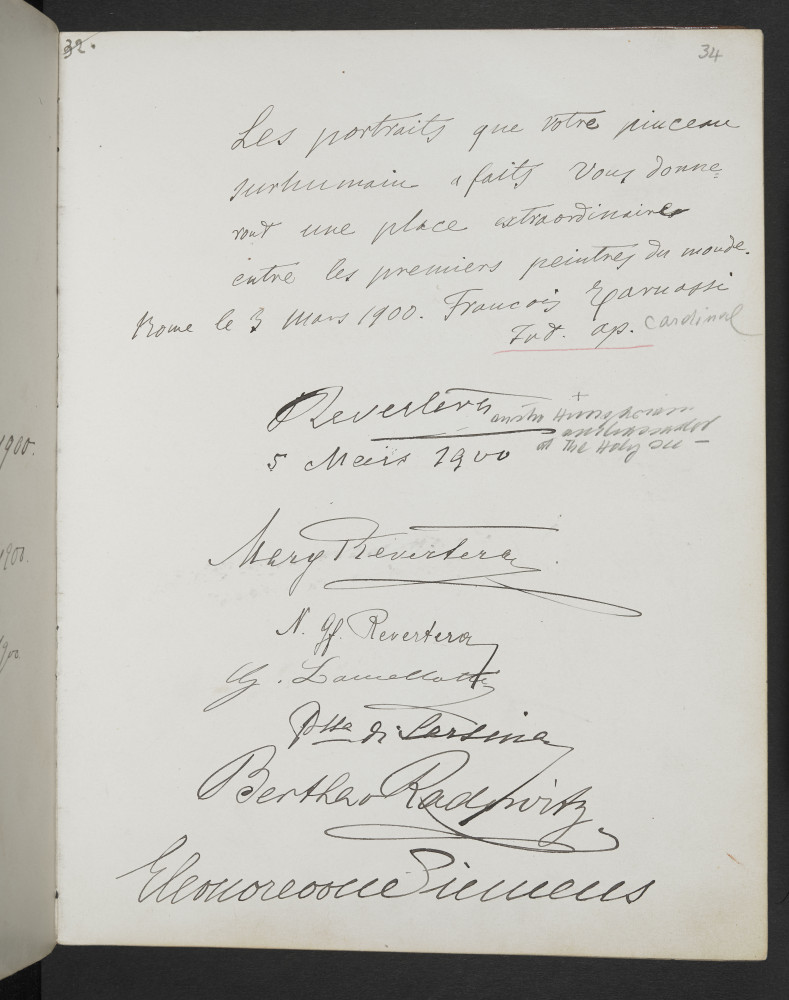 32.
34
Les portraits que votre pinceau
surhumain a faits vous donne=
ront une place extraordinaire
entre les premiers peintres du monde.
Rome le 3 Mars 1900. François
cardinal
Revertera
ambassador
at The Holy See –
5 März 1900
Mary Revertera
N. Gf. Revertera
G. Lancellotti
Pssa di Sarsina
Bertha Radowitz
Eleonore von Siemens
1900.
1900.